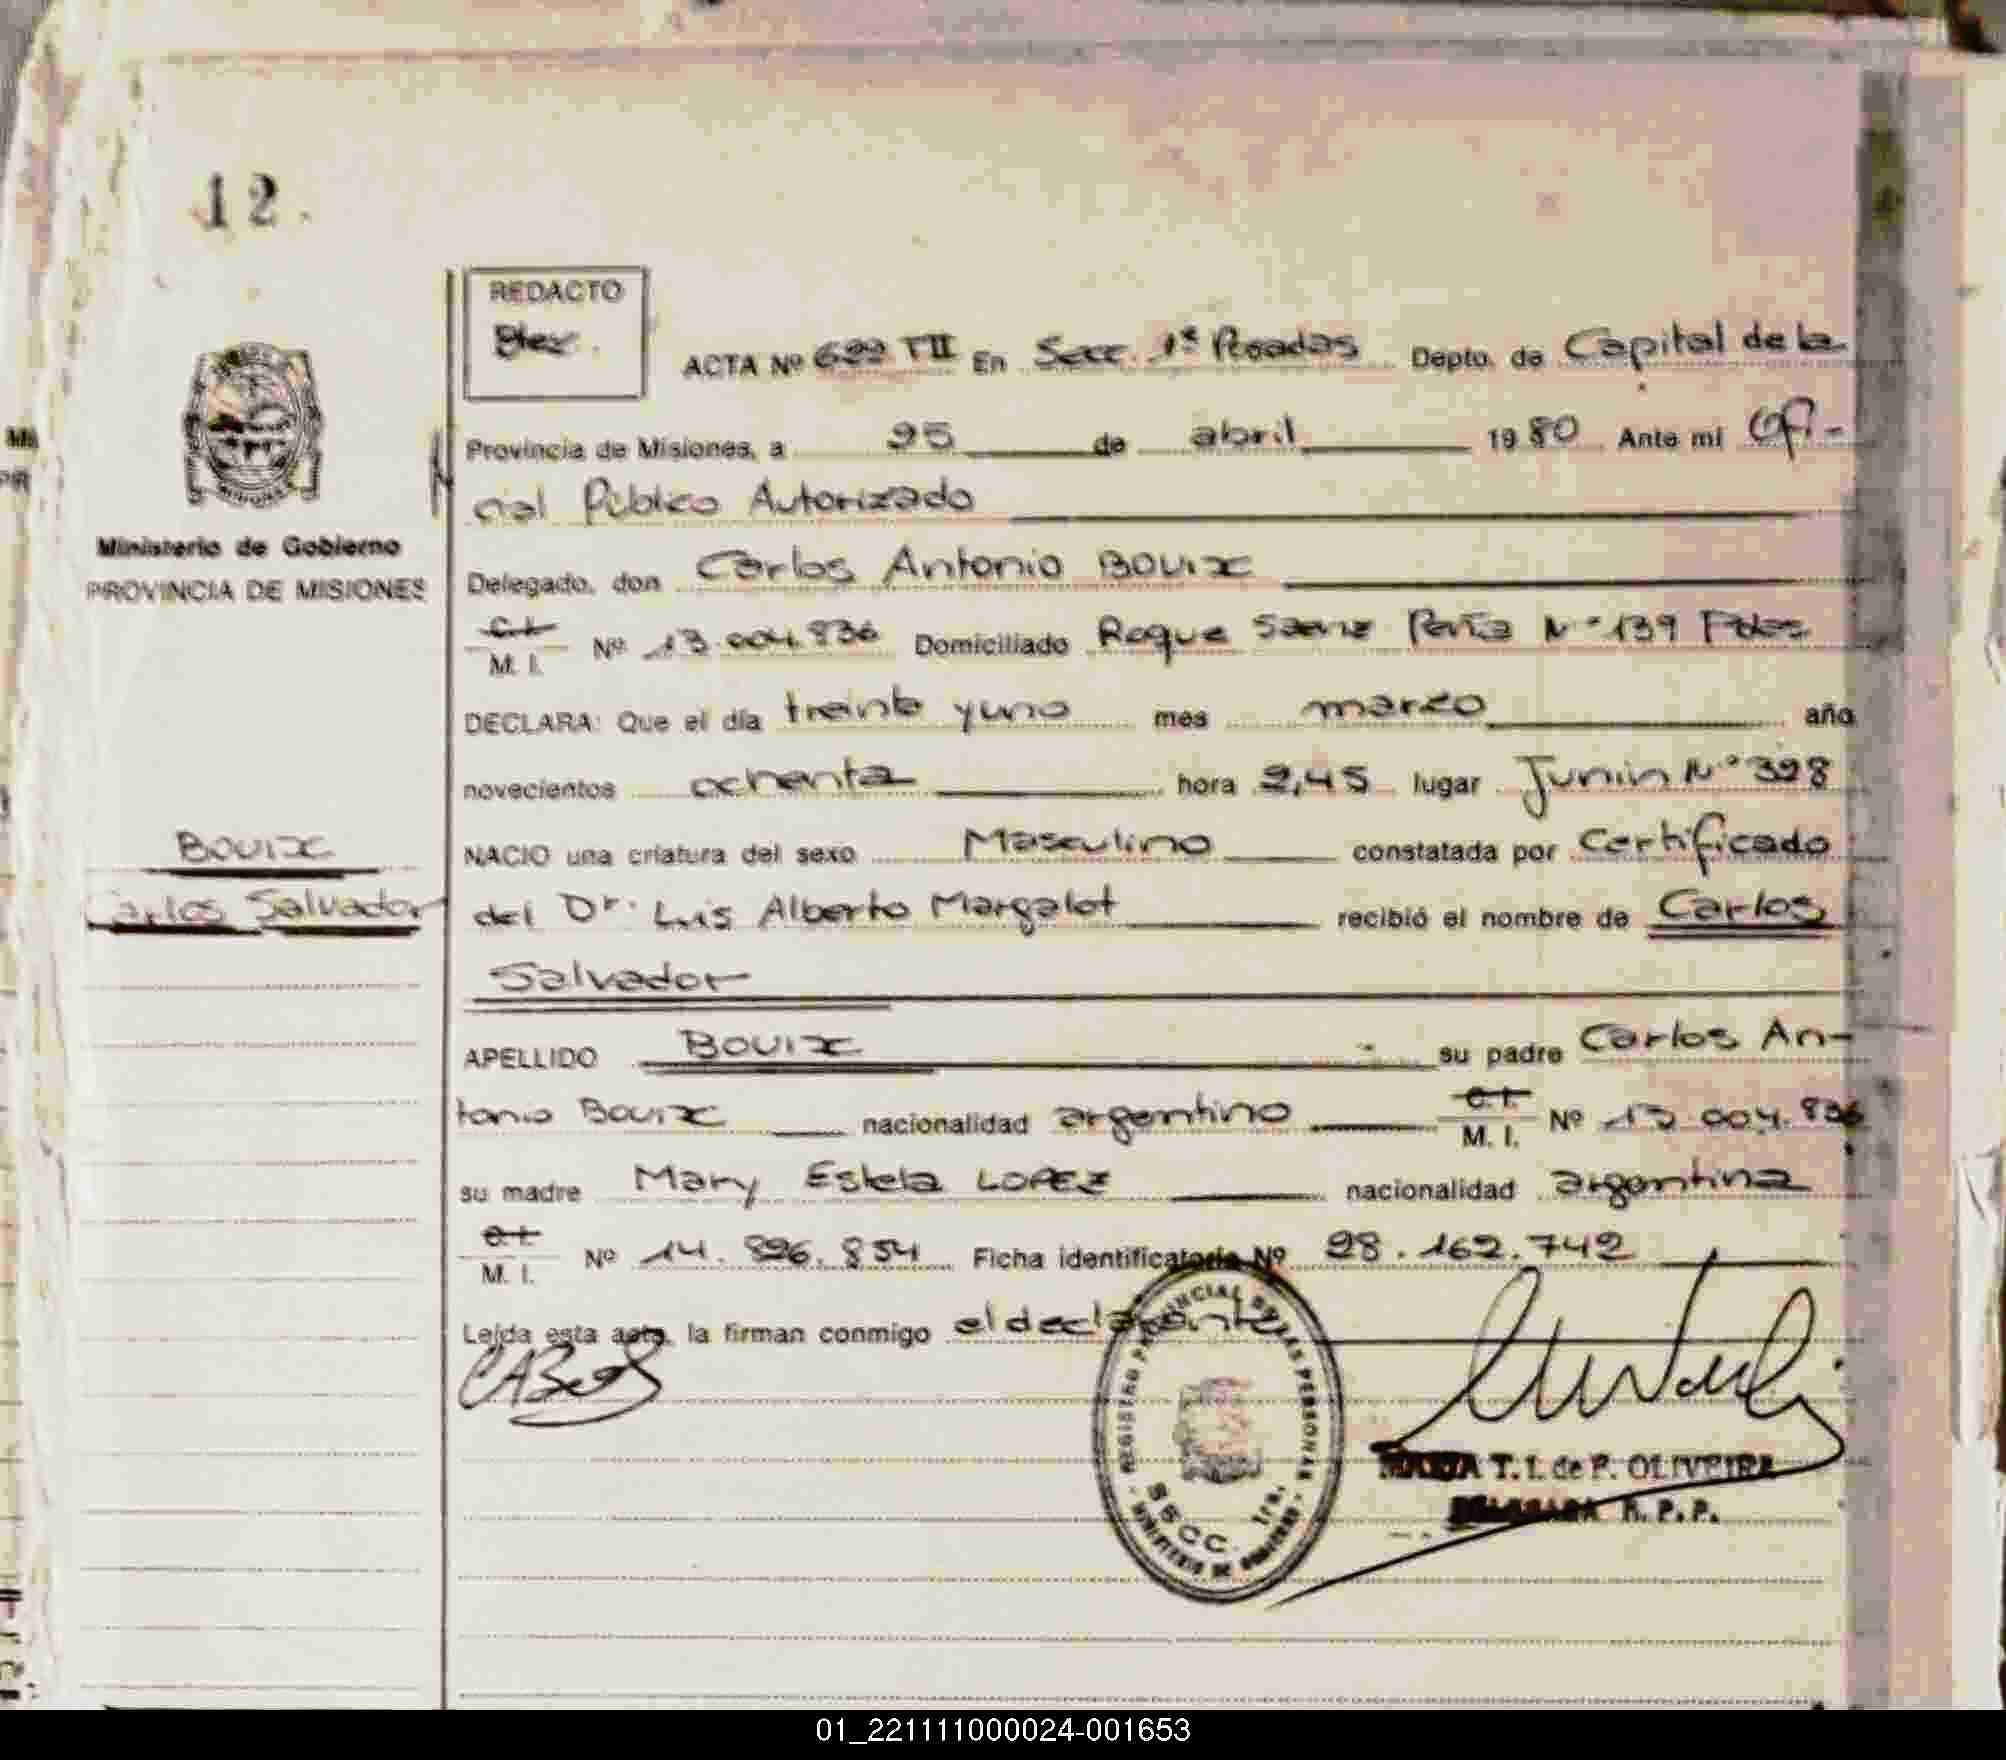 12.
REDACTO
ACTA Nº 622 TII En Secc. 1ª Posadas Depto. de Capital de la
Provincia de Misiones, a 25 de abril 1980 Ante mí Ofi-
cial Público Autorizado
Ministerio de Gobierno
PROVINCIA DE MISIONES
Delegado, don Carlos Antonio BOUIX
C.I.
M. I. Nº 13.004.836 Domiciliado Roque Saenz Peña Nº 139 Pdas
DECLARA: Que el día treinta y uno mes marzo año
novecientos ochenta hora 2,45 lugar Junin Nº 328
BOUIX
NACIO una criatura del sexo Masculino constatada por Certificado
Carlos Salvador
del Dr. Luis Alberto Margalot recibió el nombre de Carlos
Salvador
APELLIDO BOUIX su padre Carlos An-
tonio Bouix nacionalidad argentino C.I. M. I. Nº 13 004.836
su madre Mary Estela LOPEZ nacionalidad argentina
C.I.
M. I. Nº 14.826.854 Ficha identificatoria Nº 28.162.742
Leída esta acta, la firman conmigo el declarante
REGISTRO PROVINCIAL DE LAS PERSONAS
SECC. 1ra.
MINISTERIO DE GOBIERNO
MARIA T. I. de P. OLIVEIRA
DELEGADA R. P. P.
01_221111000024-001653